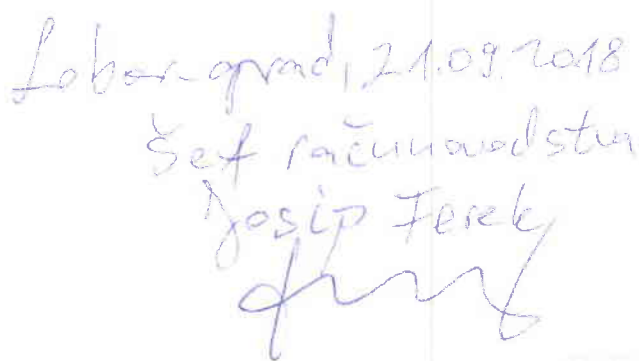 Lobor-grad, 21.09.2018
Šef računovodstva
Josip Ferek